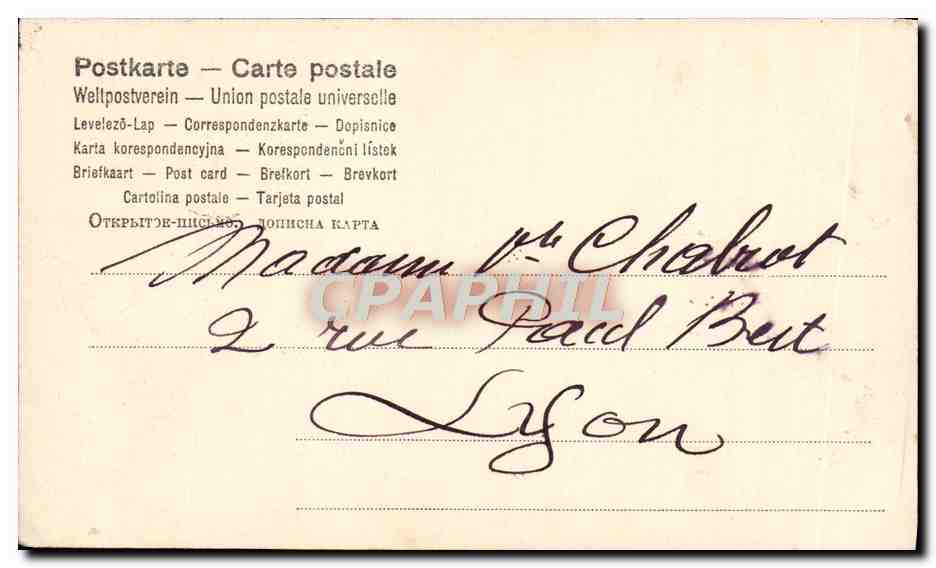 Postkarte — Carte postale
Weltpostverein — Union postale universelle
Levelező-Lap — Correspondenzkarte — Dopisnice
Karta korespondencyjna — Korespondenční lístek
Briefkaart — Post card — Brefkort — Brevkort
Cartolina postale — Tarjeta postal
Открытое-письмо. дописна карта
Madame Vve Chabrot
CPAPHIL
2 rue Paul Bert
Lyon